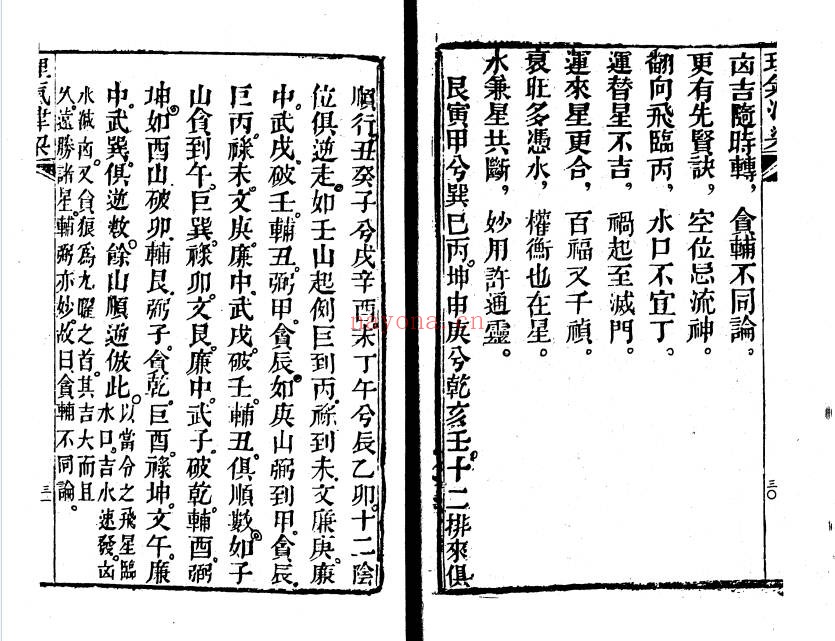 凶吉隨時轉，貪輔不同論。
更有先賢訣，空位忌流神。
翻向飛臨丙，水口不宜丁。
運替星不吉，禍起至滅門。
運來星更合，百福又千禎。
衰旺多憑水，權衡也在星。
水兼星共斷，妙用許通靈。
艮寅甲兮巽巳丙。坤申庚兮乾亥壬。十二排來俱
三〇
順行。丑癸子兮戌辛酉。未丁午兮辰乙卯。十二陰
位俱逆走。如壬山起例。巨到丙。祿到未。文廉庚。廉
中。武戌。破壬。輔丑。弼甲。貪辰。如庚山。弼到甲。貪辰。
巨丙。祿未。文庚。廉中。武戌。破壬。輔丑。俱順數。如子
山。貪到午。巨巽。祿卯。文艮。廉中。武子。破乾。輔酉。弼
坤。如酉山。破卯。輔艮。弼子。貪乾。巨酉。祿坤。文午。廉
中。武巽。俱逆數。餘山順逆倣此。以當令之飛星臨
水口。吉水速發。凶
水減凶。又貪狼為九曜之首。其吉大而且
久。遠勝諸星。輔弼亦妙。故曰貪輔不同論。
三一
nayona.cn